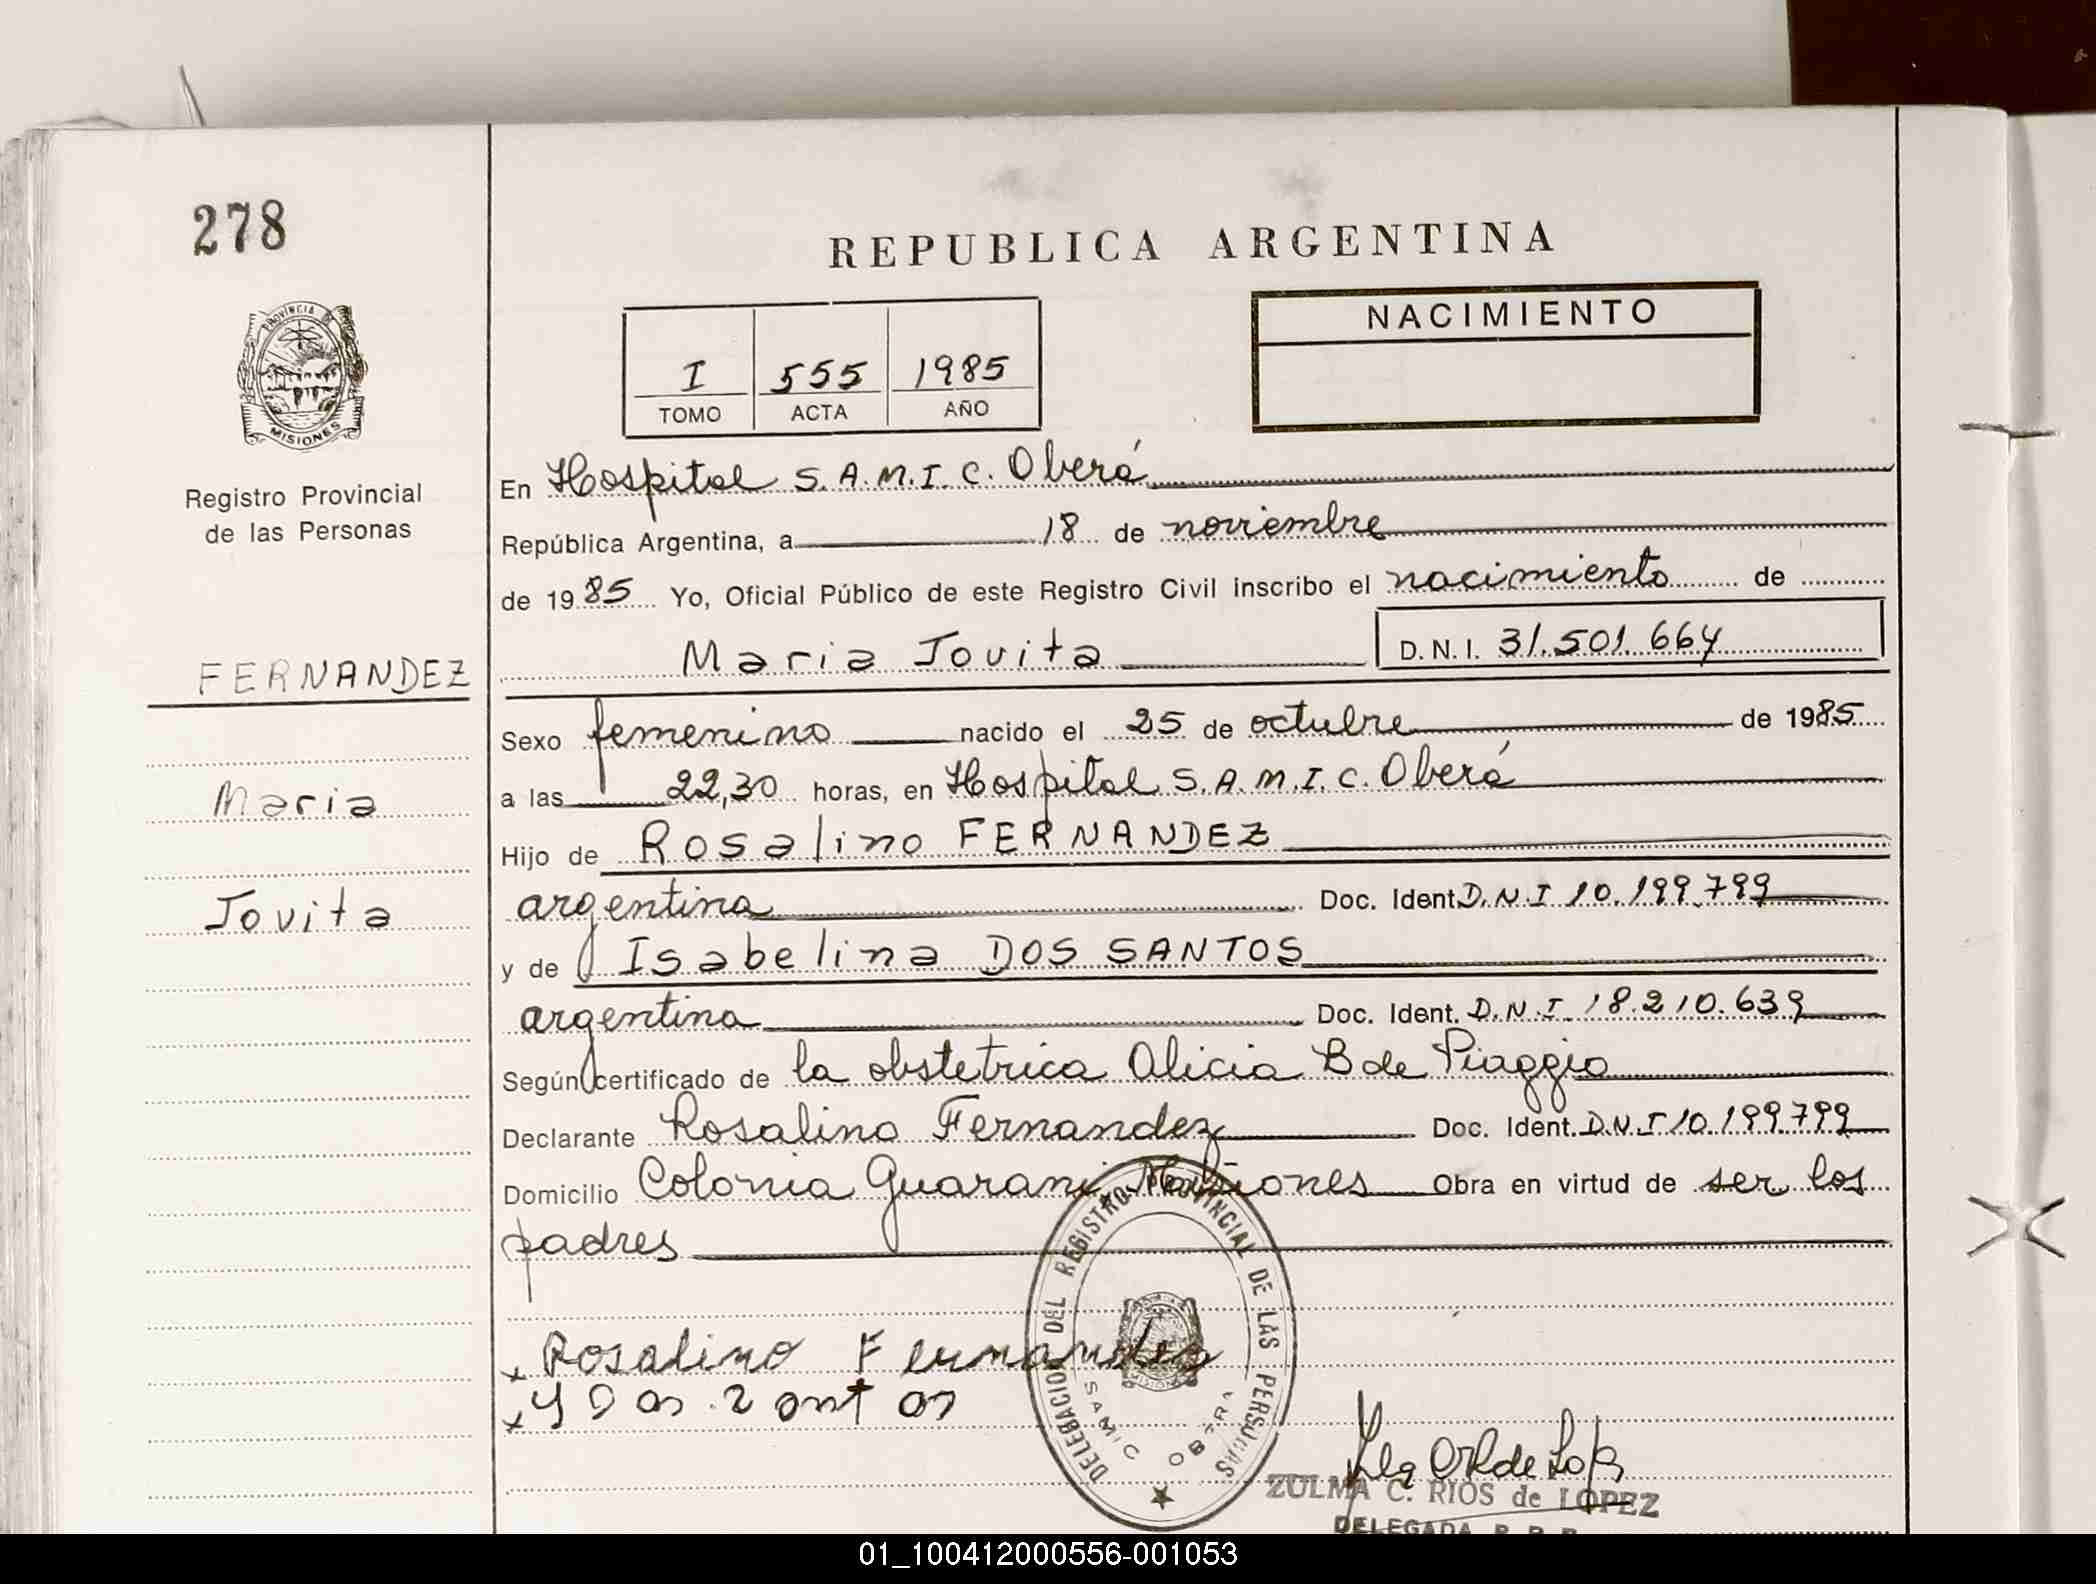 278
REPUBLICA ARGENTINA
PROVINCIA DE
MISIONES
I 555 1985
TOMO ACTA AÑO
NACIMIENTO
Registro Provincial
de las Personas
En Hospital S.A.M.I.C. Oberá
República Argentina, a 18 de noviembre
de 1985 Yo, Oficial Público de este Registro Civil inscribo el nacimiento de
Maria Jovita D.N.I. 31.501.664
FERNANDEZ
Maria
Jovita
Sexo femenino nacido el 25 de octubre de 1985
a las 22,30 horas, en Hospital S.A.M.I.C. Oberá
Hijo de Rosalino FERNANDEZ
argentina Doc. Ident. D.N.I 10.199.799
y de Isabelina DOS SANTOS
argentina Doc. Ident. D.N.I. 18.210.639
Según certificado de la obstetrica Alicia B de Piaggio
Declarante Rosalino Fernandez Doc. Ident. D.N.I 10.199.799
Domicilio Colonia Guarani Misiones Obra en virtud de ser los
padres
x Rosalino Fernandez
DELEGACION DEL REGISTRO PROVINCIAL DE LAS PERSONAS
SAMIC OBERA
ZULMA C. RIOS de LOPEZ
DELEGADA R. P. P.
01_100412000556-001053